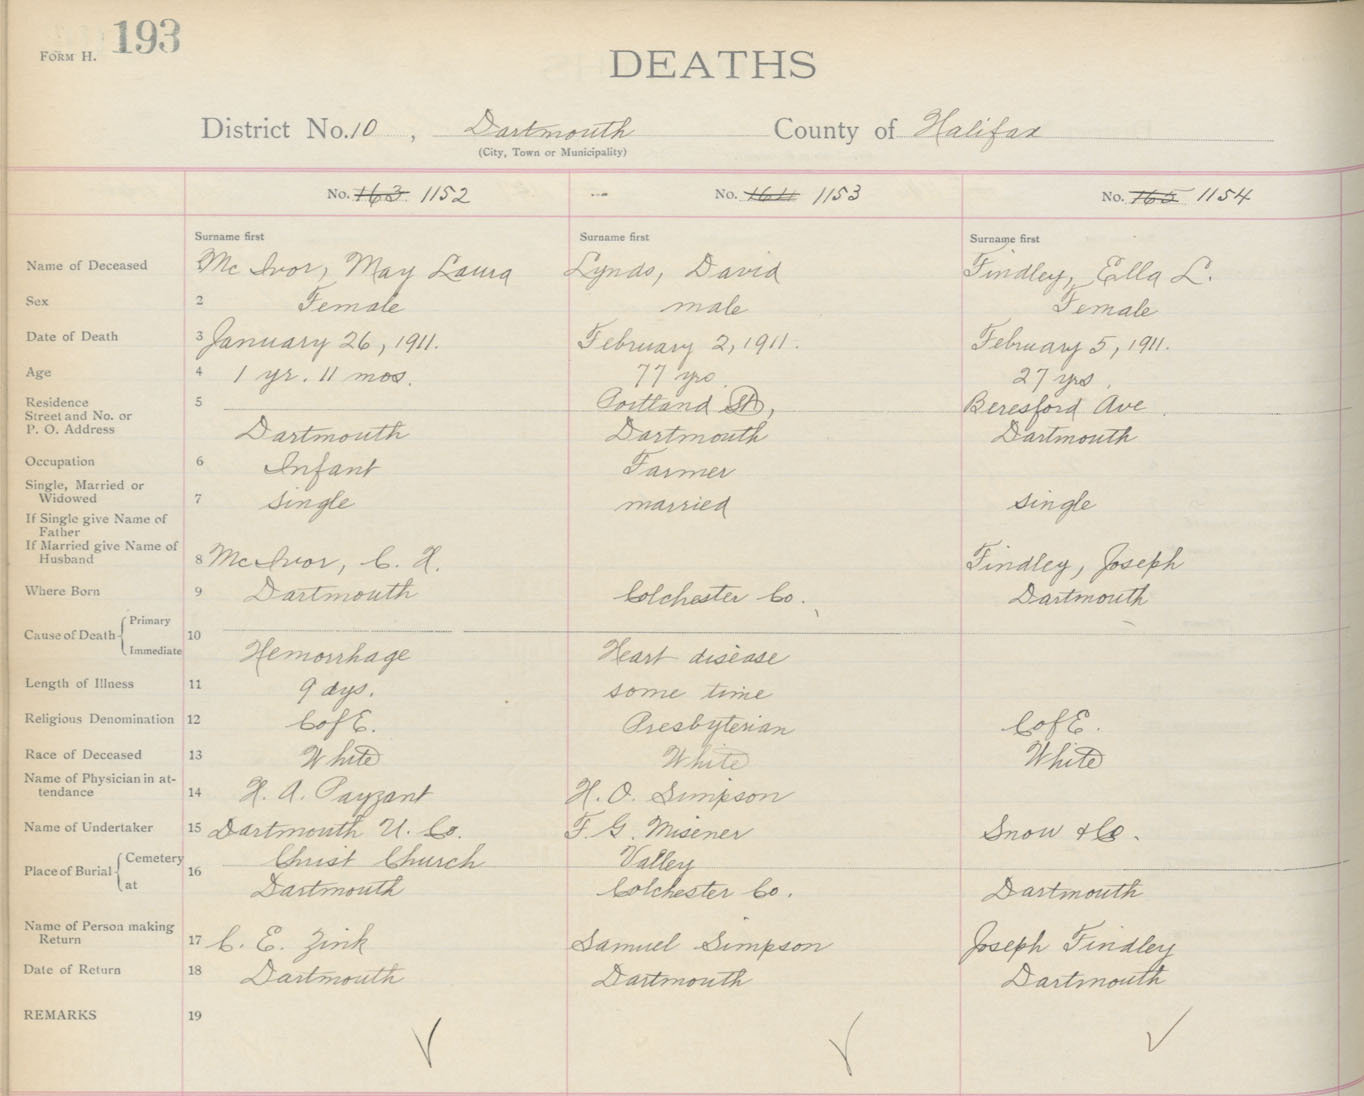 FORM H. 193
DEATHS
District No. 10, Dartmouth County of Halifax
(City, Town or Municipality)
No. 163 1152 No. 164 1153 No. 165 1154
Surname first Surname first Surname first
Name of Deceased 1 Mc Ivor, May Laura Lynds, David Findley, Ella L.
Sex 2 Female male Female
Date of Death 3 January 26, 1911. February 2, 1911. February 5, 1911.
Age 4 1 yr. 11 mos. 77 yrs. 27 yrs.
Residence 5 Portland St, Beresford Ave
Street and No. or
P. O. Address Dartmouth Dartmouth Dartmouth
Occupation 6 Infant Farmer
Single, Married or
Widowed 7 single married single
If Single give Name of
Father
If Married give Name of
Husband 8 McIvor, C. H. Findley, Joseph
Where Born 9 Dartmouth Colchester Co. Dartmouth
Cause of Death Primary
10
Immediate Hemorrhage Heart disease
Length of Illness 11 9 dys. some time
Religious Denomination 12 C of E. Presbyterian C of E.
Race of Deceased 13 White White White
Name of Physician in at-
tendance 14 H. A. Payzant H. O. Simpson
Name of Undertaker 15 Dartmouth U. Co. F. G. Misener Snow & Co.
Place of Burial Cemetery 16 Christ Church Valley
at Dartmouth Colchester Co. Dartmouth
Name of Person making
Return 17 C. E. Zink Samuel Simpson Joseph Findley
Date of Return 18 Dartmouth Dartmouth Dartmouth
REMARKS 19